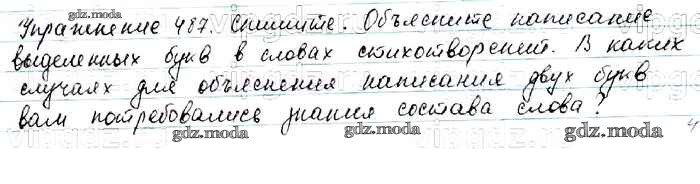 Упражнение 487. Спишите. Объясните написание
выделенных букв в словах стихотворений. В каких
случаях для объяснения написания двух букв
вам потребовались знания состава слова?
gdz.moda gdz.moda gdz.moda